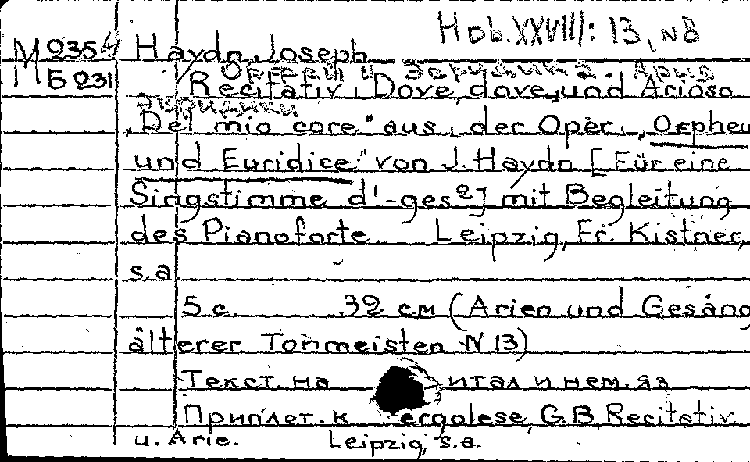 Hob.XXVIII: 13, N8
М 235 Haydn, Joseph
Б 231 Орфей и Эвридика. Ария
Recitativ „Dove, dove„und Arioso
Эвридики
„Del mio core" aus der Oper „Orpheu
und Euridice" von J. Haydn [Für eine
Singstimme d'-ges²] mit Begleitung
des Pianoforte Leipzig, Fr. Kistner,
s.a
5 с. 32 см (Arien und Gesäng
älterer Tonmeisten N 13)
Текст на итал и нем. яз
Приплет. к ergolese, G.B. Recitativ
u. Arie. Leipzig, s.a.